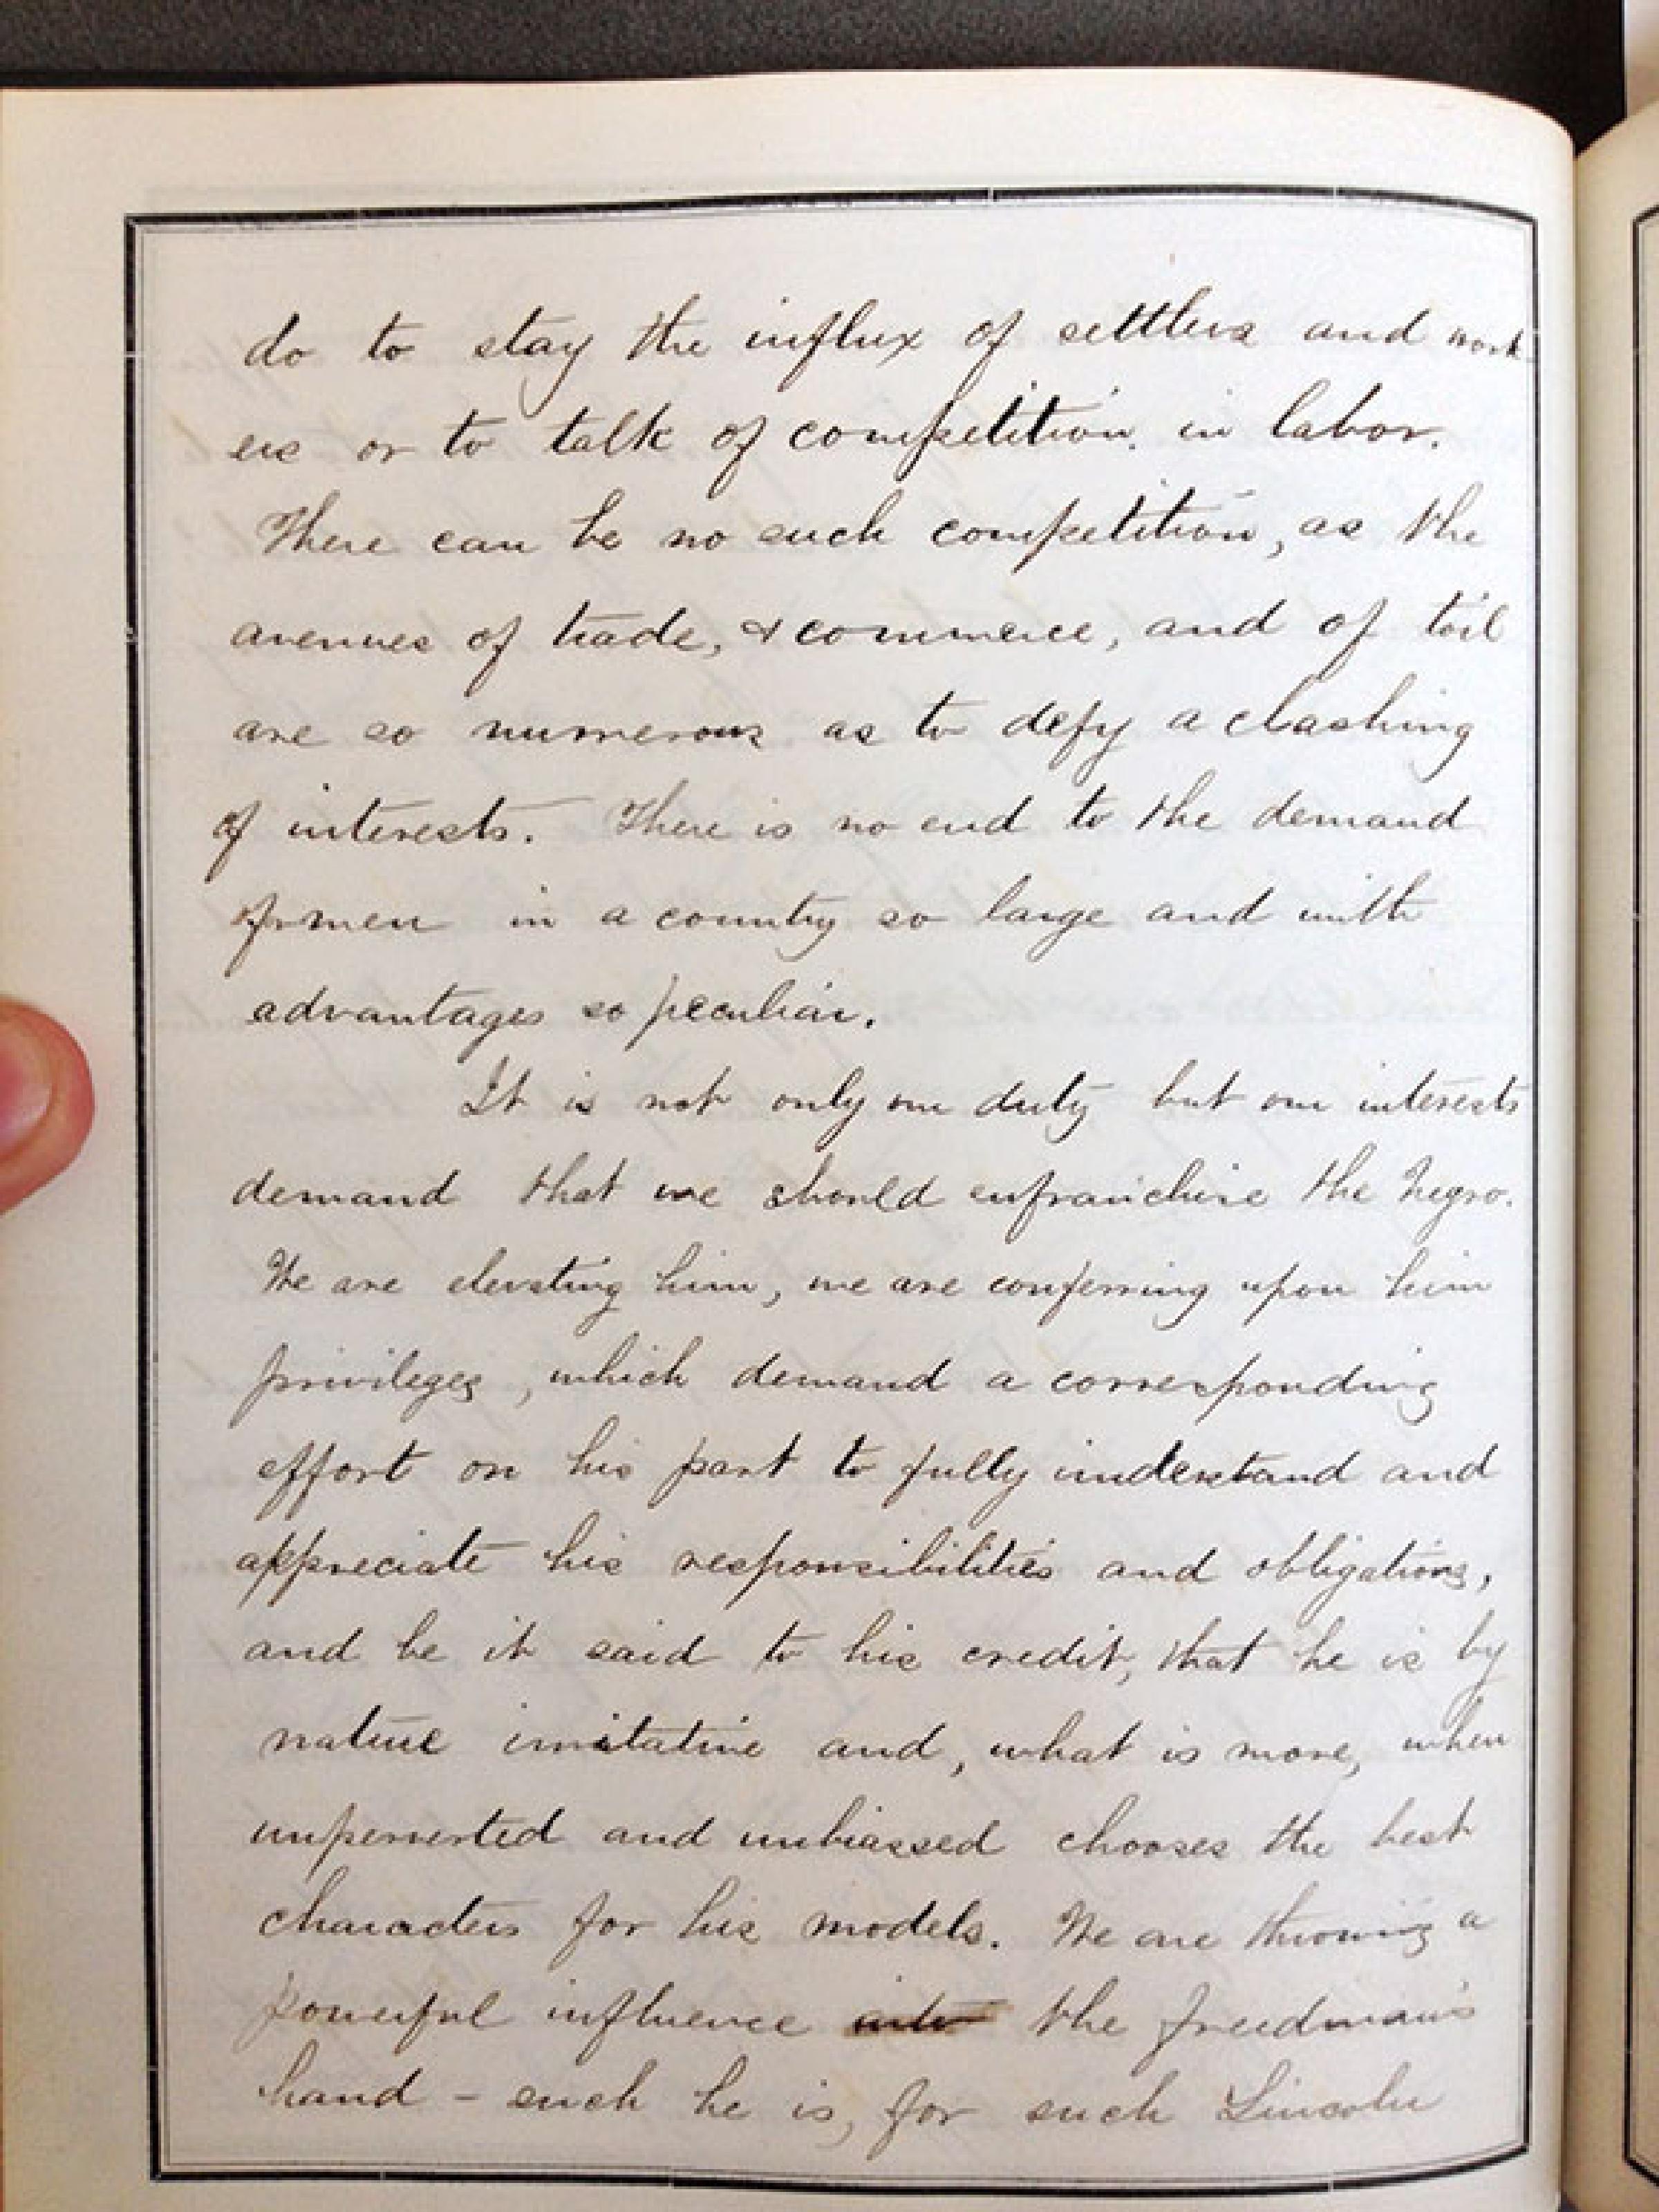 do to stay the influx of settlers and work-
ers or to talk of competition in labor.
There can be no such competition, as the
avenues of trade, & commerce, and of toil
are so numerous as to defy a clashing
of interests. There is no end to the demand
for men in a country so large and with
advantages so peculiar.
It is not only our duty but our interests
demand that we should enfranchise the Negro.
We are elevating him, we are conferring upon him
privileges, which demand a corresponding
effort on his part to fully understand and
appreciate his responsibilities and obligations,
and be it said to his credit, that he is by
nature imitative and, what is more, when
unperverted and unbiassed chooses the best
characters for his models. We are throwing a
powerful influence into the freedman's
hand - such he is, for such Lincoln